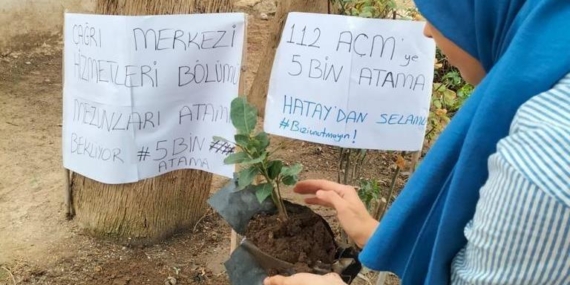 ÇAĞRI MERKEZİ
HİZMETLERİ BÖLÜMÜ
MEZUNLARI ATAMA
BEKLİYOR #5BİN
ATAMA
112 ACM'ye
5 BİN ATAMA
HATAY'DAN SELAMLAR
#Biziunutmayın!